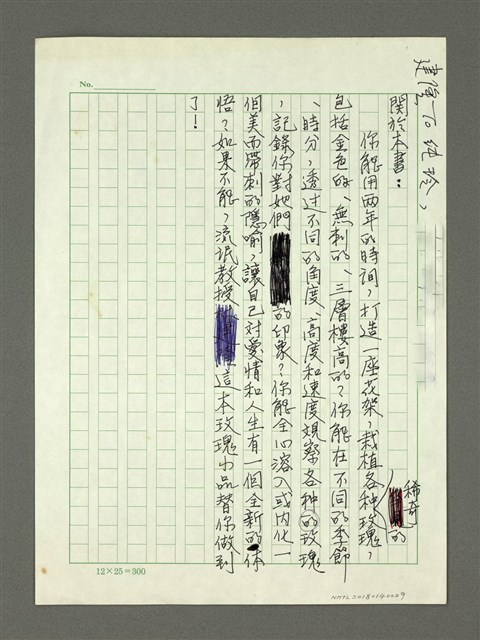 建隆 To 純玲,
關於本書:
你能用兩年的時間,打造一座花架,栽植各種玫瑰,
稀奇的
包括金色的、無刺的、三層樓高的?你能在不同的季節
、時分,透過不同的角度、高度和速度觀察各種的玫瑰
,記錄你對她們的印象?你能全心溶入或內化一
個美而帶刺的隱喻,讓自己對愛情和人生有一個全新的体
悟?如果不能,流氓教授這本玫瑰小品替你做到
了!
No.
12×25=300
NMTL20180140029